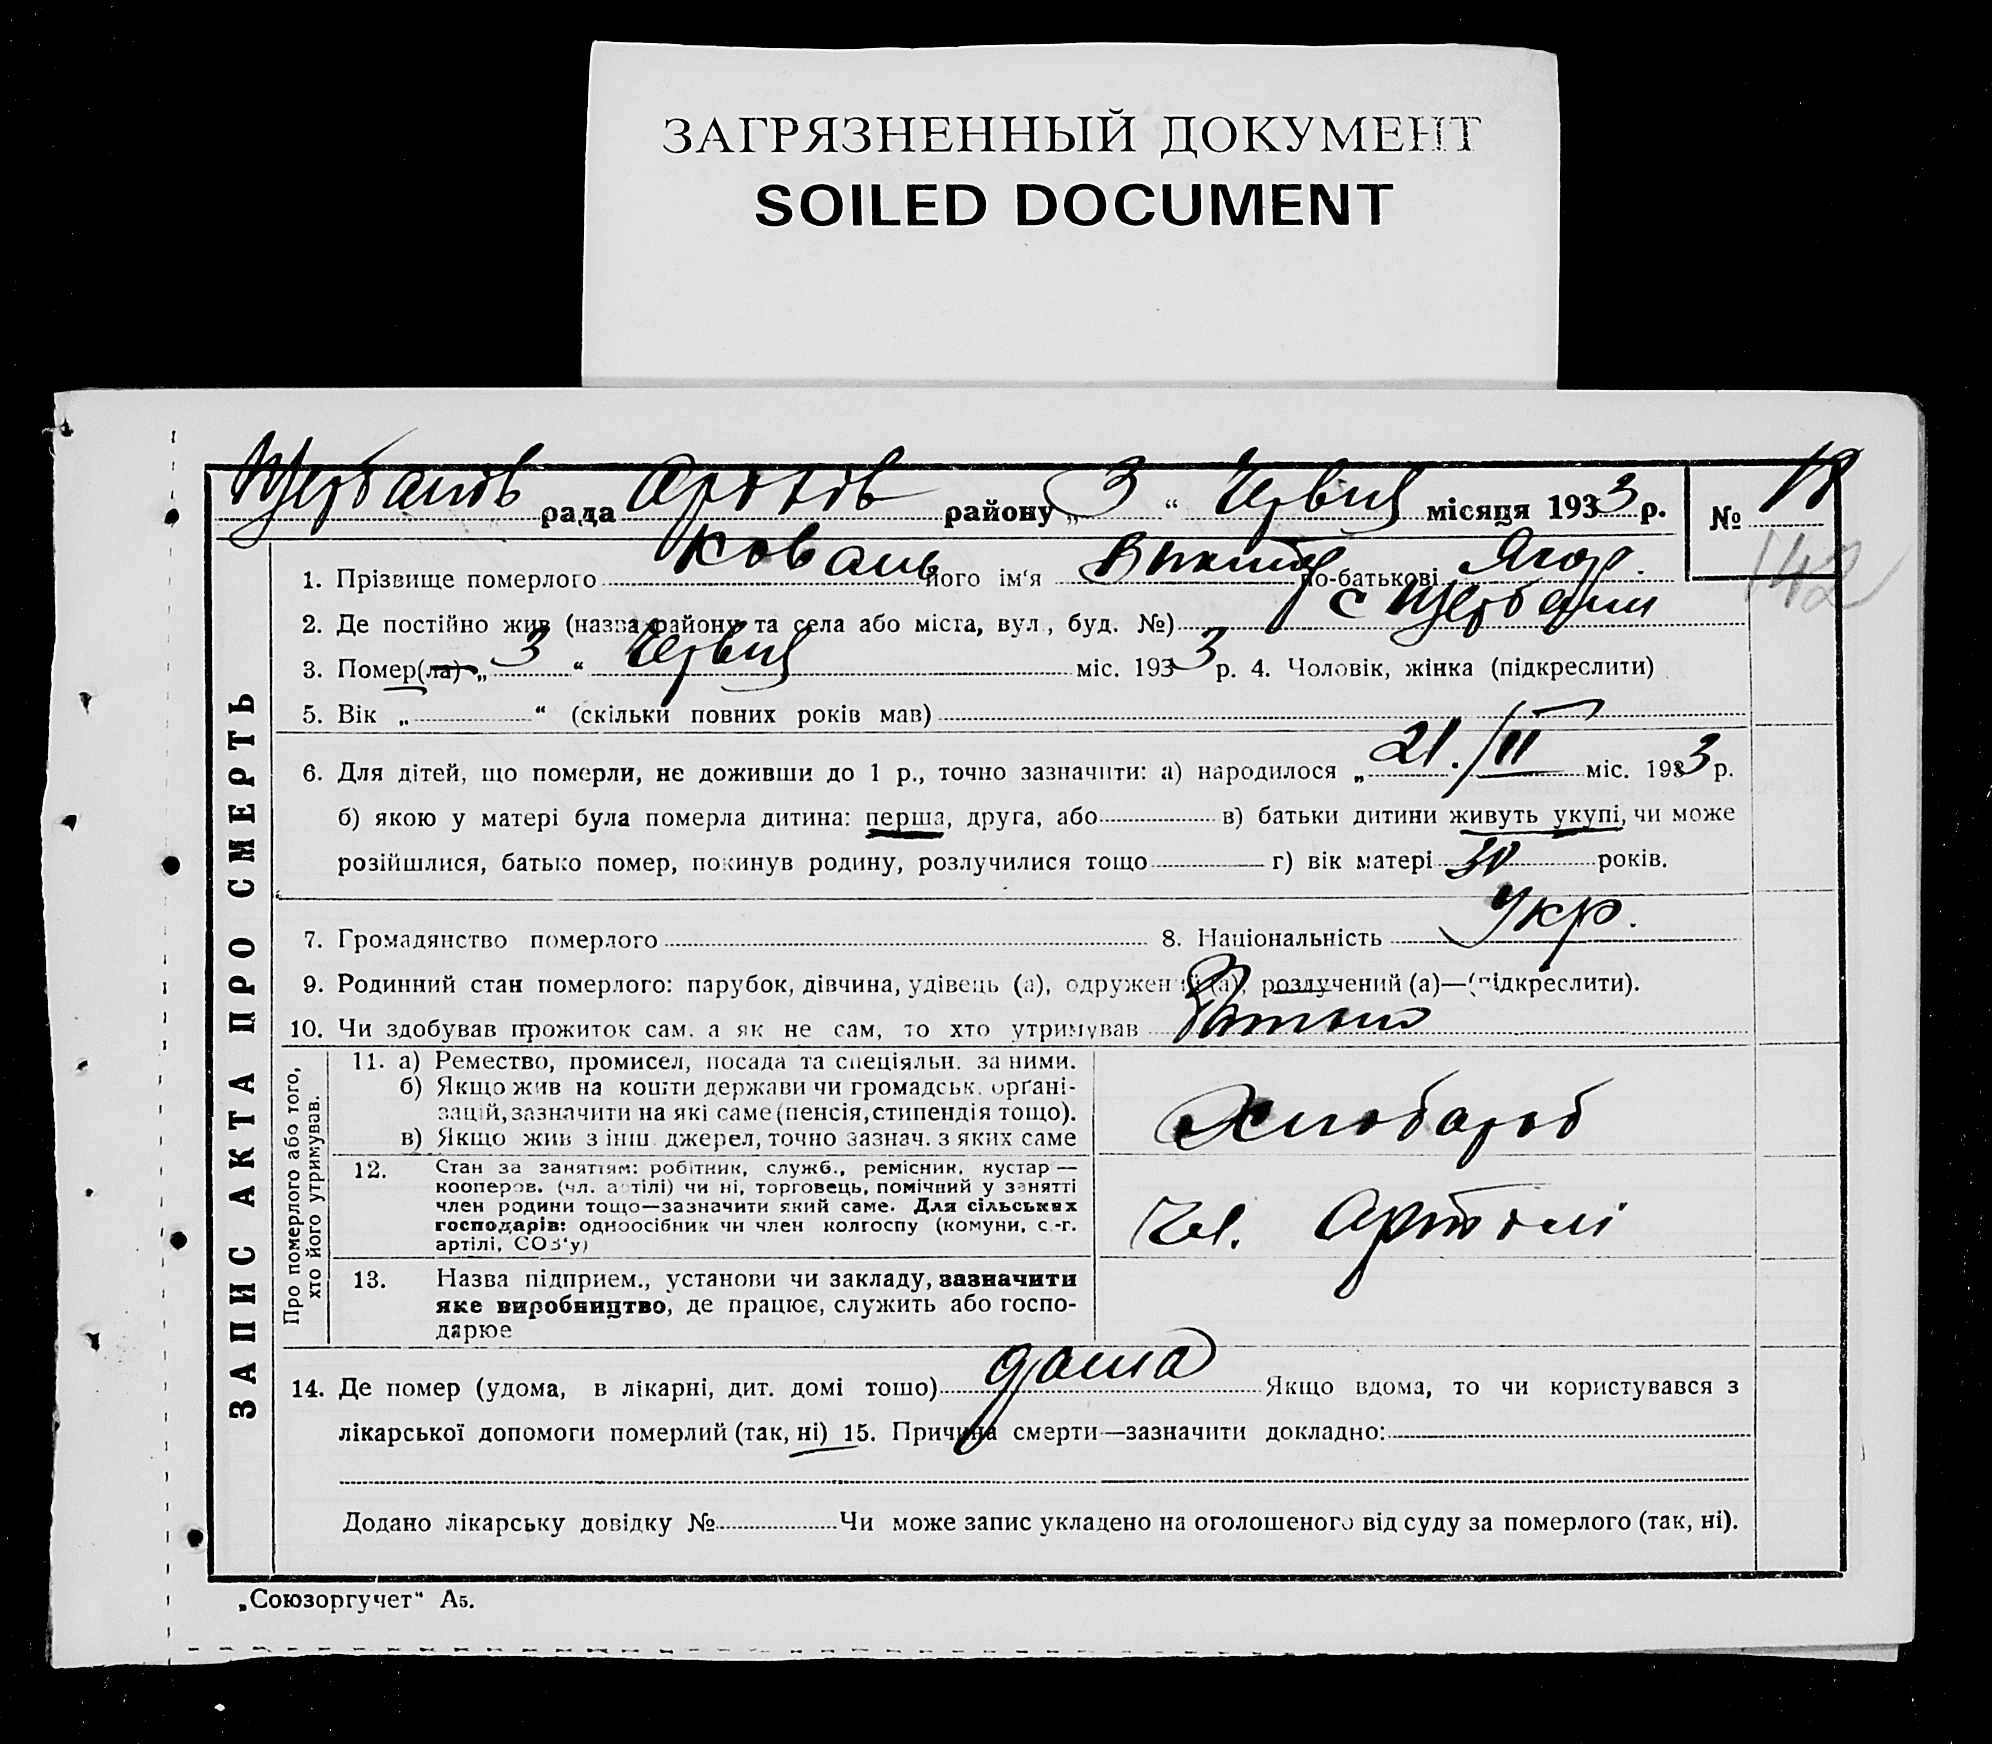 ЗАГРЯЗНЕННЫЙ ДОКУМЕНТ
SOILED DOCUMENT
рада району „ 3 “ Червня місяця 1933 р. № 18
142
1. Прізвище померлого Коваль його ім‘я по-батькові Ягор.
2. Де постійно жив (назва району та села або міста, вул., буд. №) с Щербани
3. Помер(ла) „ 3 “ Червня міс. 1933 р. 4. Чоловік, жінка (підкреслити)
5. Вік „ “ (скільки повних років мав)
6. Для дітей, що померли, не доживши до 1 р., точно зазначити: а) народилося „ 21. / II міс. 1933 р.
б) якою у матері була померла дитина: перша, друга, або в) батьки дитини живуть укупі, чи може
розійшлися, батько помер, покинув родину, розлучилися тощо г) вік матері 30 років.
7. Громадянство померлого 8. Національність Укр.
9. Родинний стан померлого: парубок, дівчина, удівець (а), одружений (а), розлучений (а)—(підкреслити).
10. Чи здобував прожиток сам, а як не сам, то хто утримував
ЗАПИС АКТА ПРО СМЕРТЬ
Про померлого або того,
хто його утримував.
11. а) Ремество, промисел, посада та спеціяльн. за ними.
б) Якщо жив на кошти держави чи громадськ. орґані-
зацій, зазначити на які саме (пенсія, стипендія тощо).
в) Якщо жив з інш. джерел, точно зазнач. з яких саме
Хлібароб
12. Стан за заняттям: робітник, служб., ремісник, кустар —
кооперов. (чл. артілі) чи ні, торговець, помічний у занятті
член родини тощо—зазначити який саме. Для сільських
господарів: одноосібник чи член колгоспу (комуни, с.-г.
артілі, СОЗ‘у)
Чл. Артілі
13. Назва підприєм., установи чи закладу, зазначити
яке виробництво, де працює, служить або госпо-
дарює
14. Де помер (удома, в лікарні, дит. домі тощо) дома Якщо вдома, то чи користувався з
лікарської допомоги померлий (так, ні) 15. Причина смерти—зазначити докладно:
Додано лікарську довідку № Чи може запис укладено на оголошеного від суду за померлого (так, ні).
„Союзоргучет“ А5.